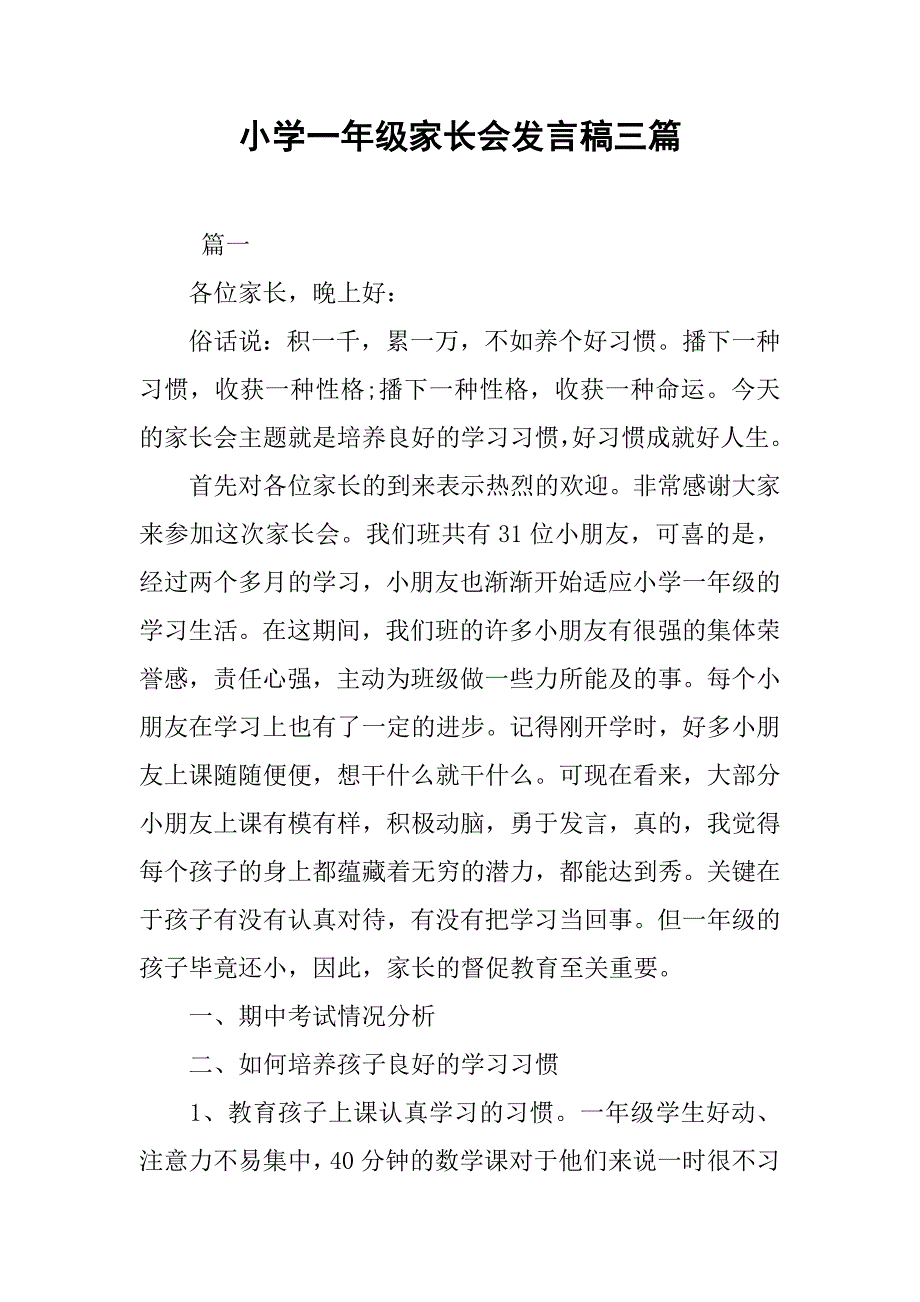 小学一年级家长会发言稿三篇
篇一
各位家长，晚上好：
俗话说：积一千，累一万，不如养个好习惯。播下一种
习惯，收获一种性格;播下一种性格，收获一种命运。今天
的家长会主题就是培养良好的学习习惯，好习惯成就好人生。
首先对各位家长的到来表示热烈的欢迎。非常感谢大家
来参加这次家长会。我们班共有 31 位小朋友，可喜的是，
经过两个多月的学习，小朋友也渐渐开始适应小学一年级的
学习生活。在这期间，我们班的许多小朋友有很强的集体荣
誉感，责任心强，主动为班级做一些力所能及的事。每个小
朋友在学习上也有了一定的进步。记得刚开学时，好多小朋
友上课随随便便，想干什么就干什么。可现在看来，大部分
小朋友上课有模有样，积极动脑，勇于发言，真的，我觉得
每个孩子的身上都蕴藏着无穷的潜力，都能达到秀。关键在
于孩子有没有认真对待，有没有把学习当回事。但一年级的
孩子毕竟还小，因此，家长的督促教育至关重要。
一、期中考试情况分析
二、如何培养孩子良好的学习习惯
1、教育孩子上课认真学习的习惯。一年级学生好动、
注意力不易集中，40 分钟的数学课对于他们来说一时很不习